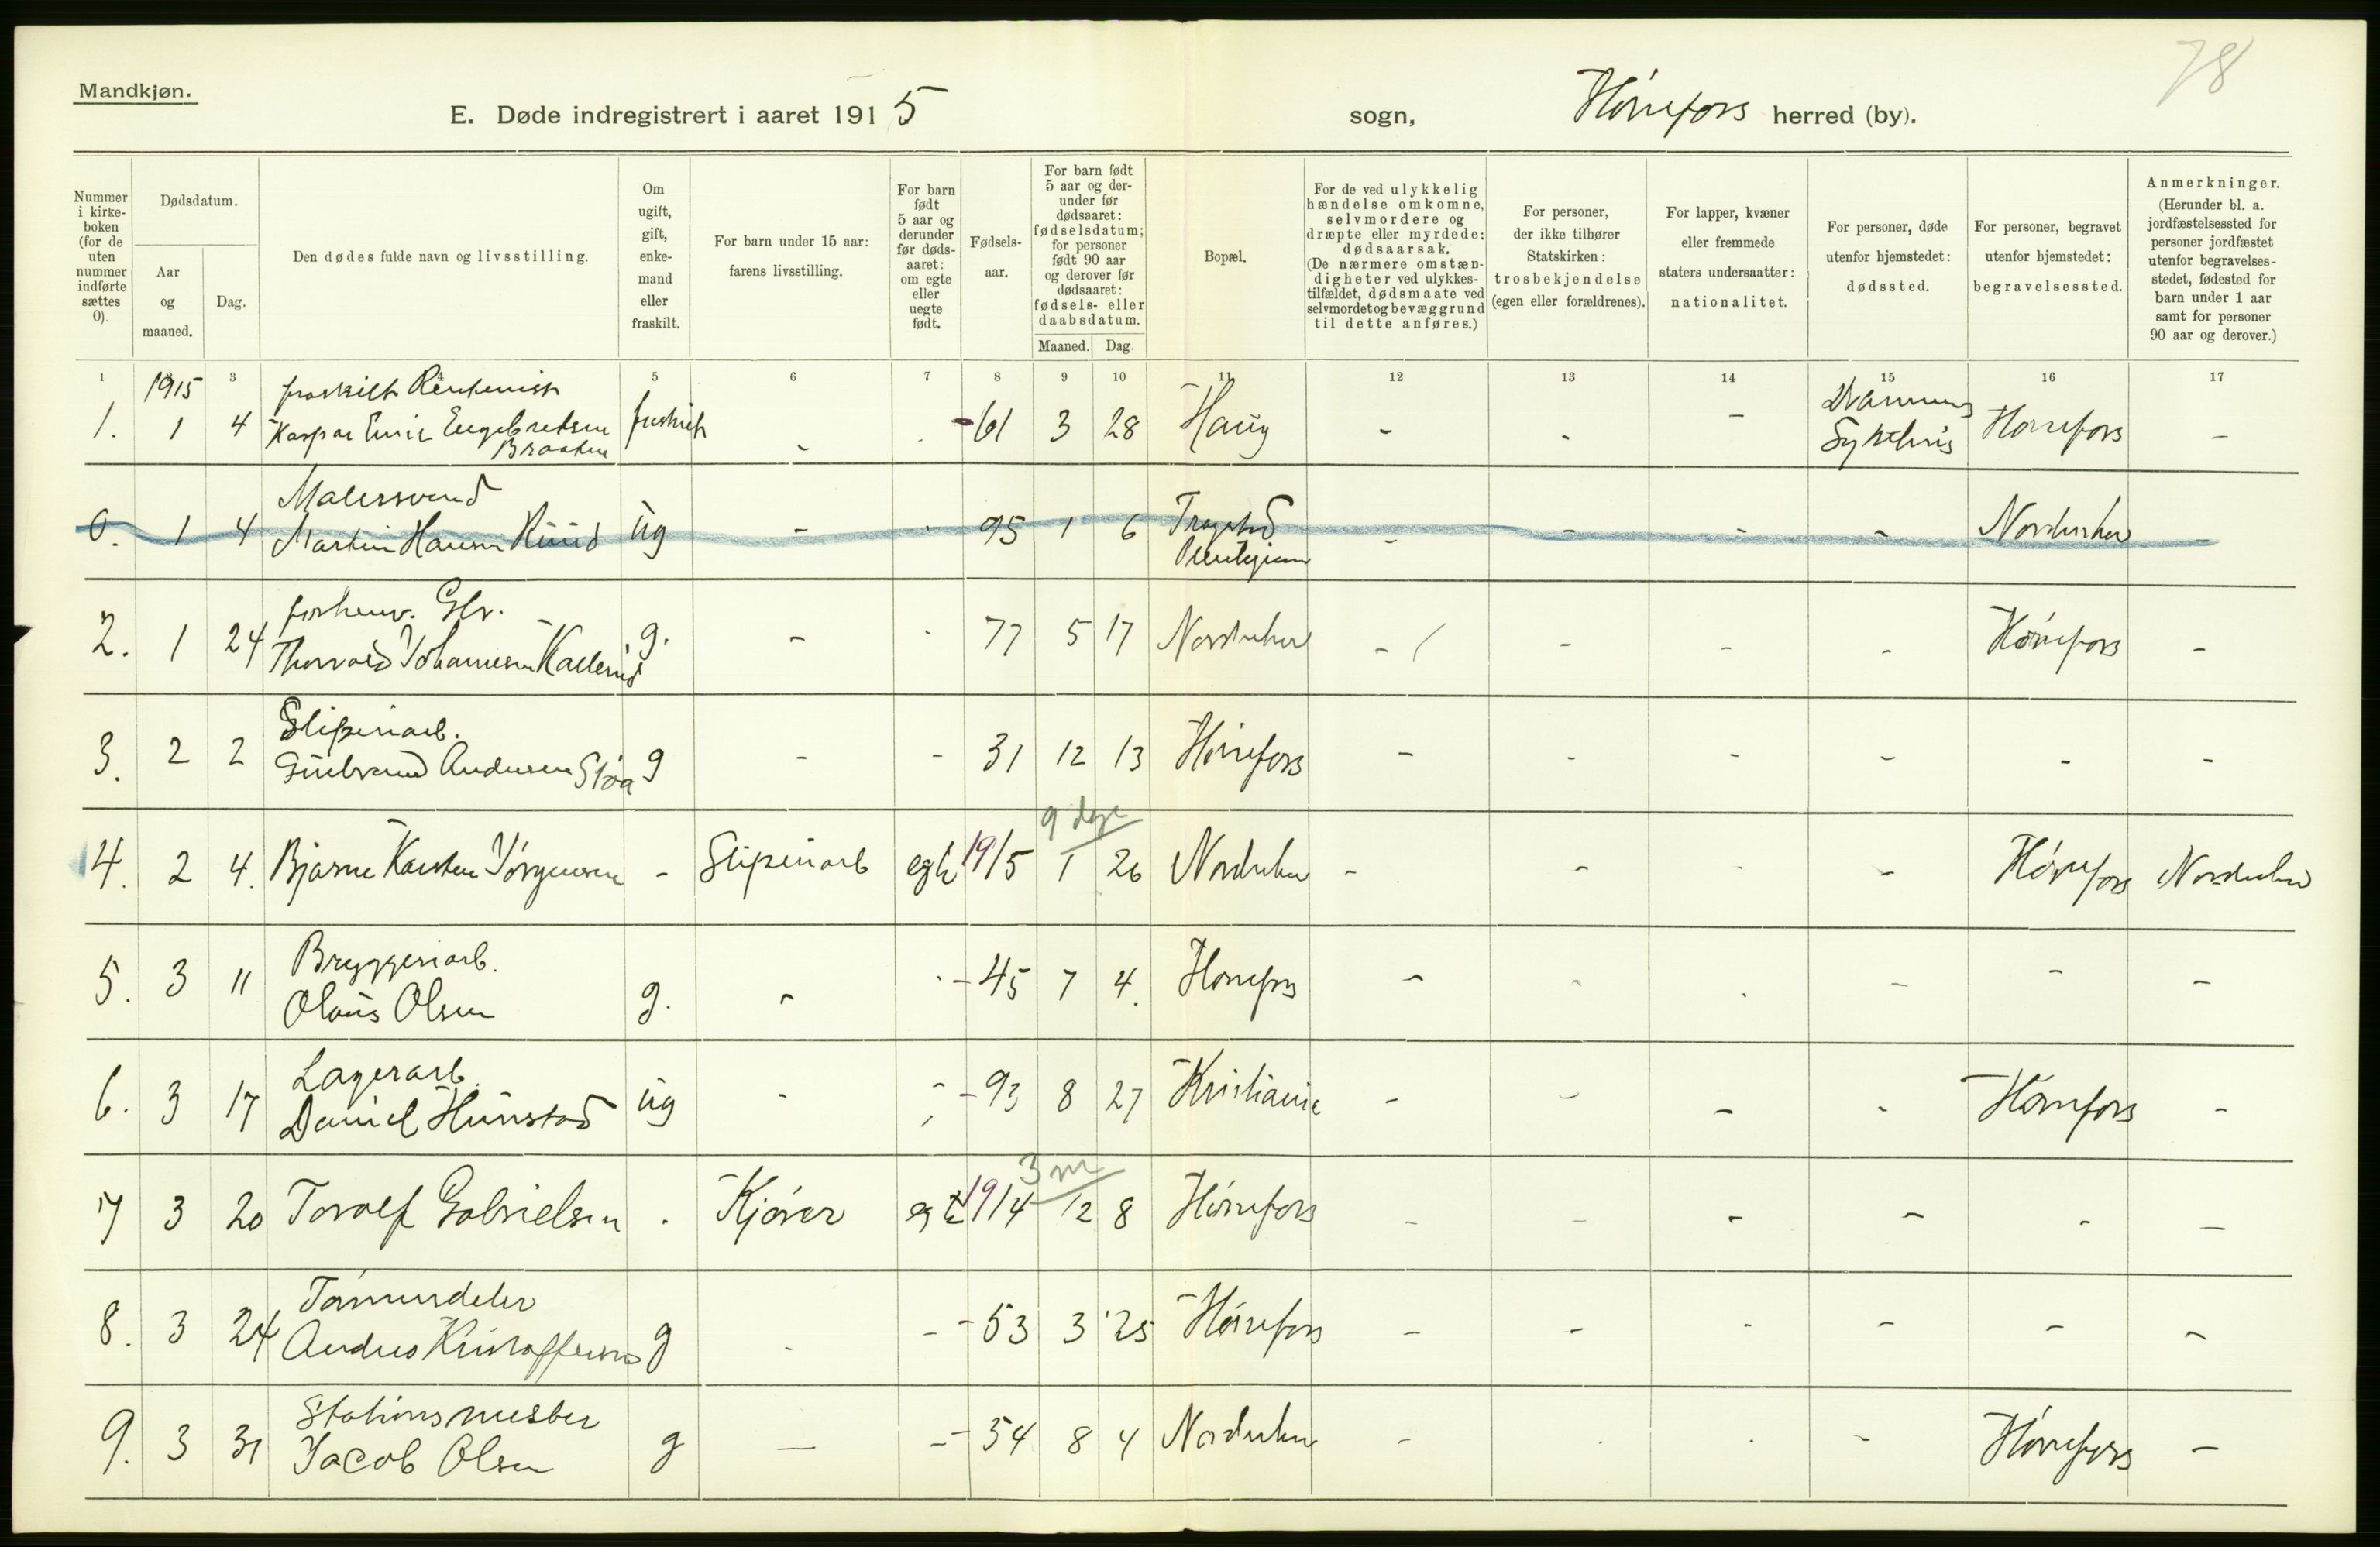 78
Mandkjøn.
E. Døde indregistrert i aaret 1915 sogn, Hönefoss herred (by).
Nummer i kirke-boken (for de uten nummer indførte sættes 0).
Dødsdatum.
Aar og maaned.
Dag.
Den dødes fulde navn og livsstilling.
Om ugift, gift, enke-mand eller fraskilt.
For barn under 15 aar: farens livsstilling.
For barn født 5 aar og derunder før døds-aaret: om egte eller uegte født.
Fødsels-aar.
For barn født 5 aar og der-under før dødsaaret: fødselsdatum; for personer født 90 aar og derover før dødsaaret: fødsels- eller daabsdatum.
Maaned. Dag.
Bopæl.
For de ved ulykkelig hændelse omkomne, selvmordere og dræpte eller myrdede: dødsaarsak. (De nærmere omstæn-digheter ved ulykkes-tilfældet, dødsmaate ved selvmordet og bevæggrund til dette anføres.)
For personer, der ikke tilhører Statskirken: trosbekjendelse (egen eller forældrenes).
For lapper, kvæner eller fremmede staters undersaatter: nationalitet.
For personer, døde utenfor hjemstedet: dødssted.
For personer, begravet utenfor hjemstedet: begravelsessted.
Anmerkninger. (Herunder bl. a. jordfæstelsessted for personer jordfæstet utenfor begravelses-stedet, fødested for barn under 1 aar samt for personer 90 aar og derover.)
1 2 3 4 5 6 7 8 9 10 11 12 13 14 15 16 17
1915 fraskilt Rentenist
1. 1 4 Kaspar Emil Engebretsen Braaten fraskilt - - 61 3 28 Haug - - - Drammens Sykehus Hönefoss -
Malersvend
0. 1 4 Martin Hansen Ruud ug - - 95 1 6 - - - - Norderhov -
forhenv. Gbr.
2. 1 24 Thorvald Johannesen g. - - 77 5 17 Norderhov - - - - Hönefoss -
Sliperiarb.
3. 2 2 Gulbrand Andersen g - - 31 12 13 Hönefoss - - - - - -
9 dage
4. 2 4. Bjarne Karsten Jörgensen - Sliperiarb egte 1915 1 26 Norderhov - - - - Hönefoss Norderhov
Bryggeriarb.
5. 3 11 Olaus Olsen g. - - 45 7 4. Hönefoss - - - - - -
Lagerarb.
6. 3 17 Daniel Hunstad ug - - 93 8 27 Kristiania - - - - Hönefoss -
3 m
7 3 20 Toralf Gabrielsen - Kjörer egte 1914 12 8 Hönefoss - - - - - -
Tömmerdeler
8. 3 24 Anders Kristoffersen g - - 53 3 25 Hönefoss - - - - - -
Stationsmester
9. 3 31 Jacob Olsen g - - 54 8 4 Norderhov - - - - Hönefoss -